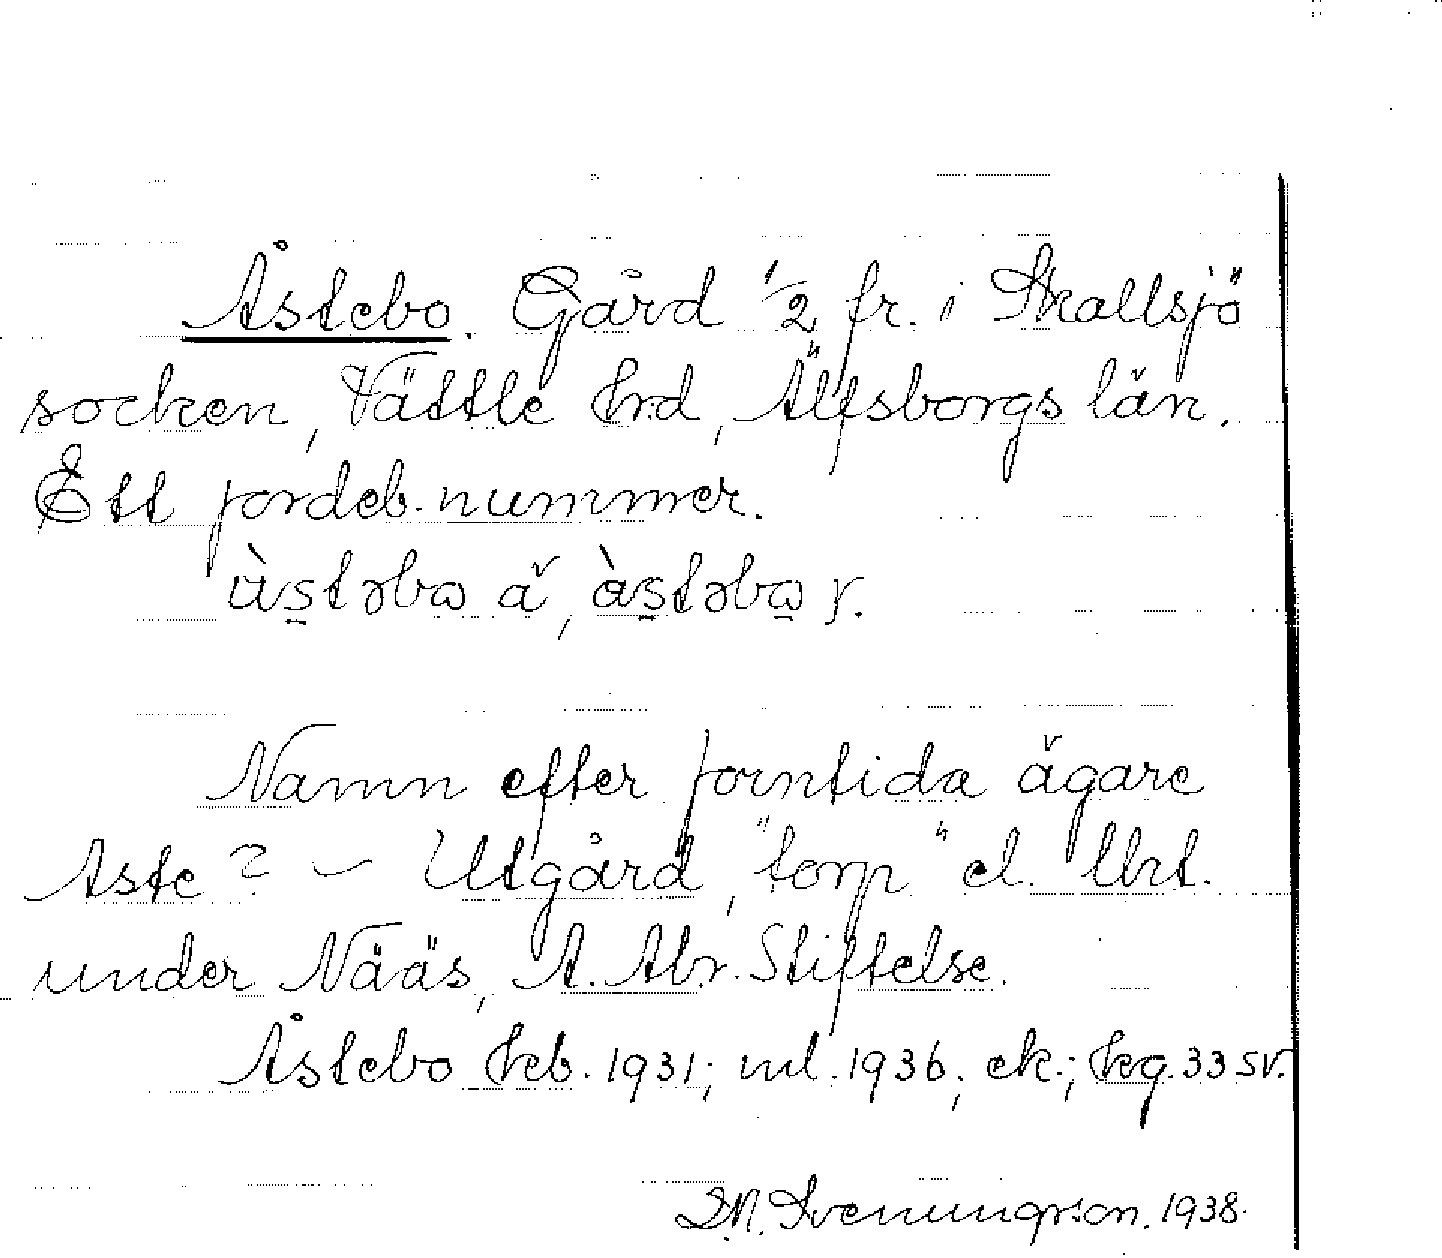 Åstebo. Gård 1/2 fr. i Skallsjö
socken, Vättle hrd, Älfsborgs län.
Ett jordeb. nummer.
ùstəbɷ ä, àstəbɷ y.
Namn efter forntida ägare
Aste? – Utgård, "torp" el. lht.
under Nääs, A. Abr. Stiftelse.
Åstebo hfb. 1931; ml. 1936; ek.; hkg. 33 SV.
D.N. Svenungsson. 1938.